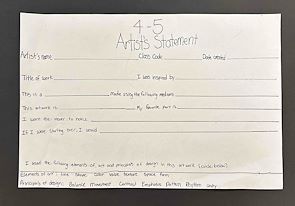 4-5
Artist's Statement
Artist's name Class Code Date created
Title of work I was inspired by
This is a made using the following mediums
This artwork is My favorite part is
I want the viewer to notice
If I were starting over, I would
I used the following elements of art and principles of design in this artwork (circle below)
Elements of art: Line Shape Color Value Texture Space Form
Principles of design: Balance Movement Contrast Emphasis Pattern Rhythm Unity